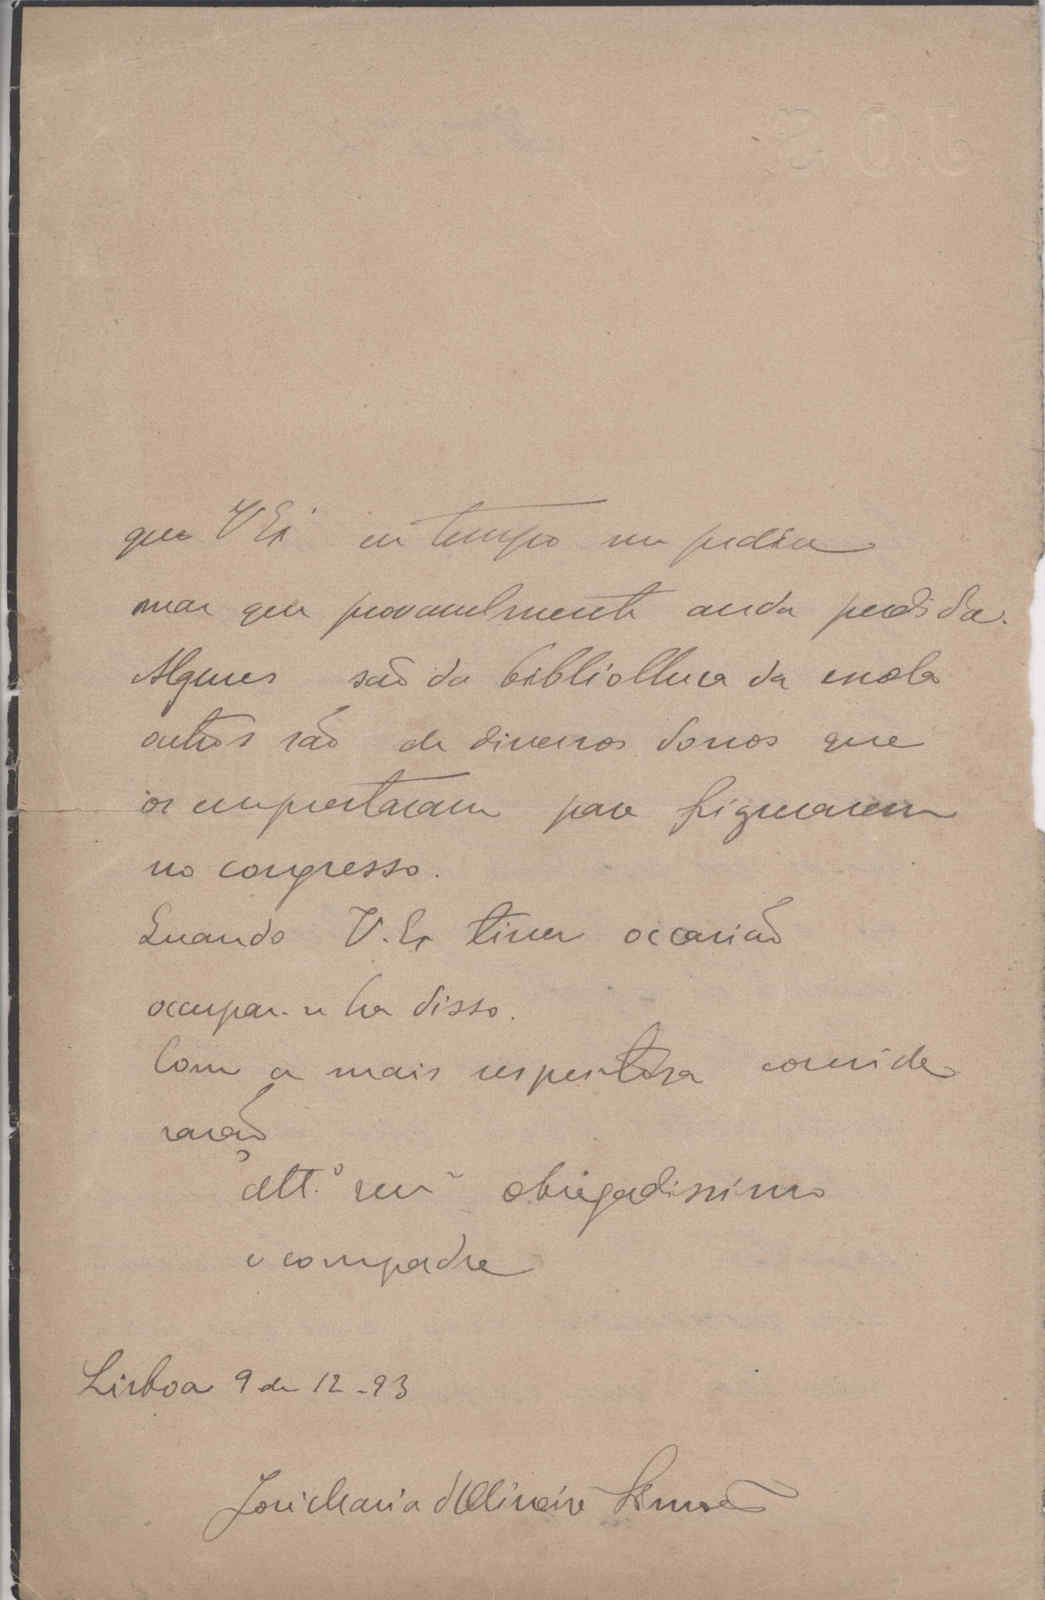 J.O.S.
que V Exª em tempo me pedia
mas que provavelmente anda perdida.
Algumas são da bibliotheca da escola
outros são de diversos donos que
os emprestaram para figurarem
no congresso.
Quando V. Ex tiver occasião
occupar-se ha disso.
Com a mais respeitosa conside
ração
att.º ven obrigadissimo
e compadre
Lisboa 9 de 12-93
José Maria d'Oliveira Simões